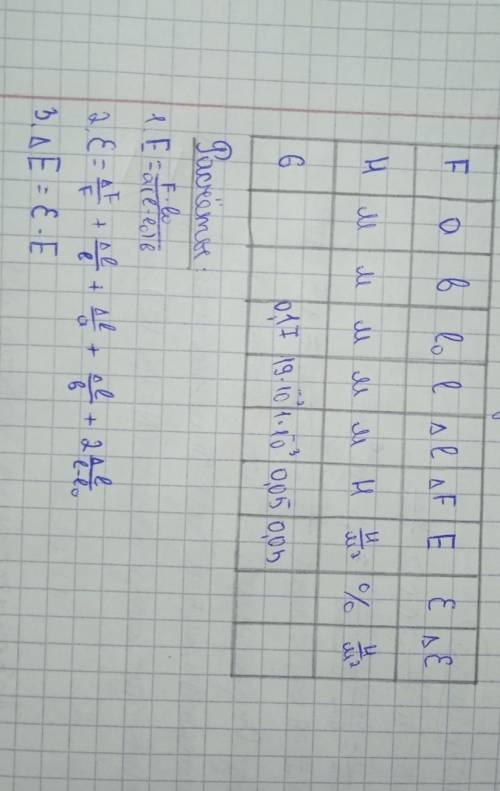 F a в l₀ l Δl ΔF E Ɛ ΔƐ
Н м м м м м Н Н/м² % Н/м²
6 0,17 19·10⁻² 1·10⁻³ 0,05 0,05
Расчёты:
1. E = F·l₀/a(l-l₀)в
2. Ɛ = ΔF/F + Δl/l + Δl/a + Δl/в + 2 Δl/l-l₀
3. ΔE = Ɛ · E